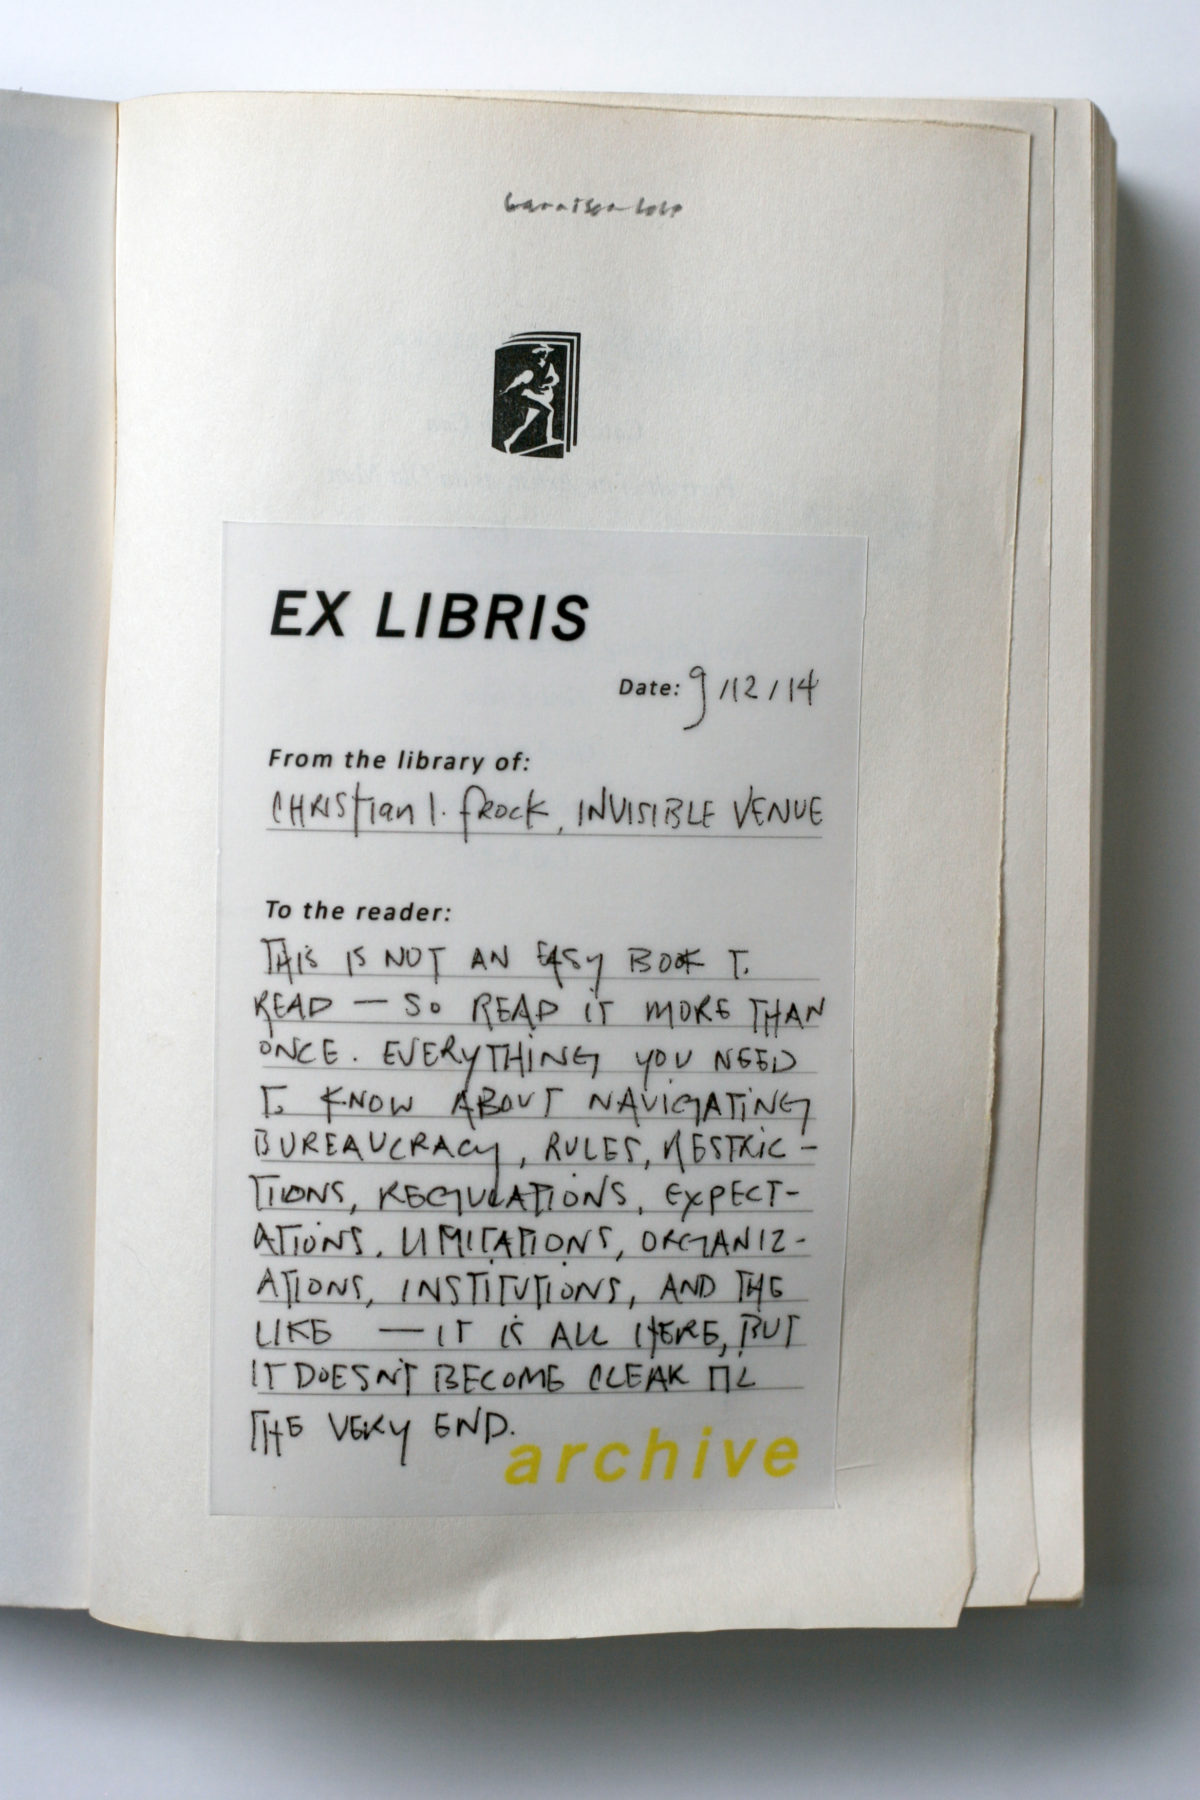 EX LIBRIS
Date: 9/12/14
From the library of:
CHRISTIAN L. FROCK, INVISIBLE VENUE
To the reader:
THIS IS NOT AN EASY BOOK TO
READ — SO READ IT MORE THAN
ONCE. EVERYTHING YOU NEED
TO KNOW ABOUT NAVIGATING
BUREAUCRACY, RULES, RESTRIC-
TIONS, REGULATIONS, EXPECT-
ATIONS, LIMITATIONS, ORGANIZ-
ATIONS, INSTITUTIONS, AND THE
LIKE — IT IS ALL HERE, BUT
IT DOESN'T BECOME CLEAR TIL
THE VERY END.
archive